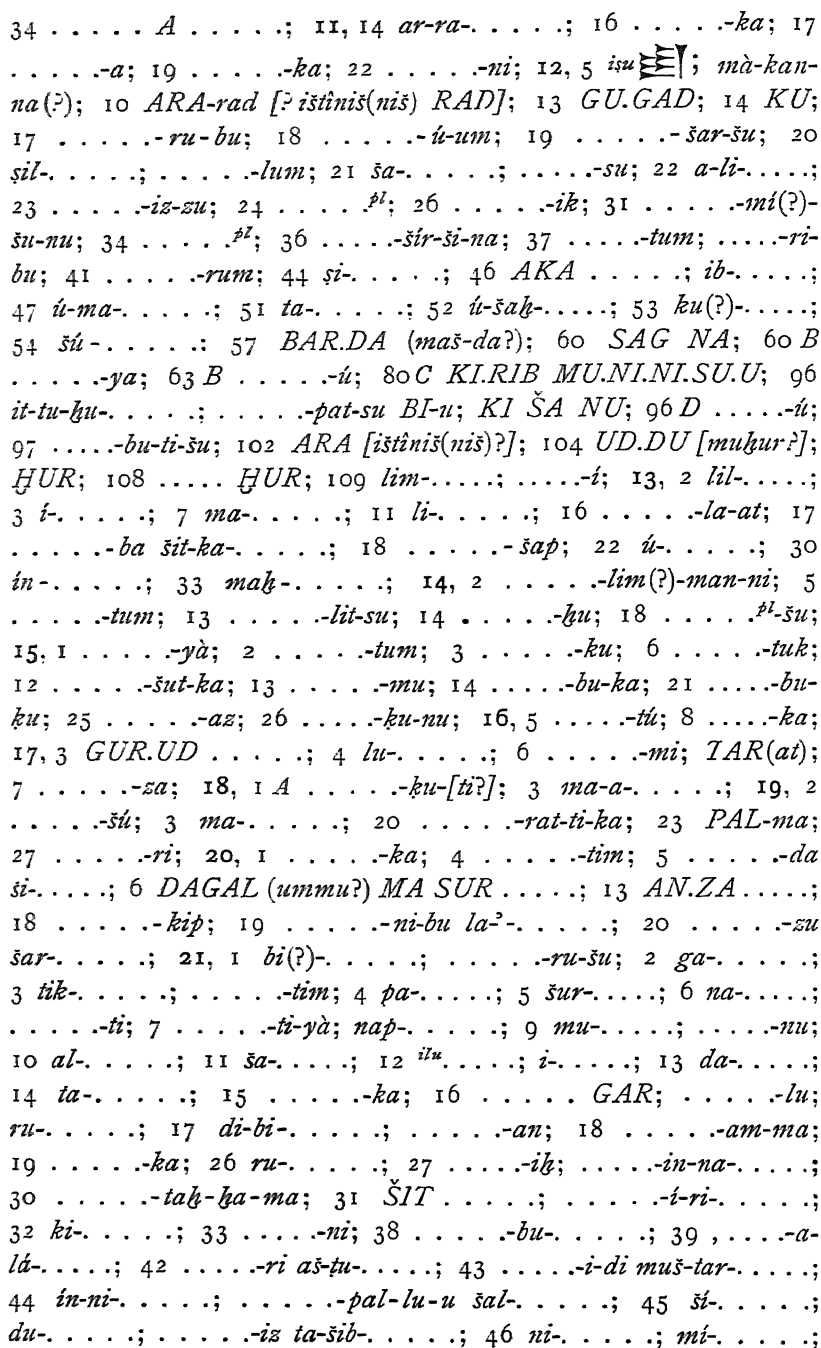 34 . . . . . A . . . . .; 11, 14 ar-ra-. . . . .; 16 . . . . .-ka; 17
. . . . .-a; 19 . . . . .-ka; 22 . . . . .-ni; 12, 5 iṣu ; mà-kan-
na(?); 10 ARA-rad [? ištîniš(niš) RAD]; 13 GU.GAD; 14 KU;
17 . . . . .-ru-bu; 18 . . . . .-ú-um; 19 . . . . .-šar-šu; 20
ṣil-. . . . .; . . . . .-lum; 21 ša-. . . . .; . . . . .-su; 22 a-li-. . . . .;
23 . . . . .-iz-zu; 24 . . . . . pl; 26 . . . . .-ik; 31 . . . . .-mí(?)-
šu-nu; 34 . . . . . pl; 36 . . . . .-šír-ši-na; 37 . . . . .-tum; . . . . .-ri-
bu; 41 . . . . .-rum; 44 ṣi-. . . . .; 46 AKA . . . . .; ib-. . . . .;
47 ú-ma-. . . . .; 51 ta-. . . . .; 52 ú-šaḫ-. . . . .; 53 ku(?)-. . . . .;
54 šú-. . . . .: 57 BAR.DA (maš-da?); 60 SAG NA; 60 B
. . . . .-ya; 63 B . . . . .-ú; 80 C KI.RIB MU.NI.NI.SU.U; 96
it-tu-ḫu-. . . . .; . . . . .-pat-su BI-u; KI ŠA NU; 96 D . . . . .-ú;
97 . . . . .-bu-ti-šu; 102 ARA [ištîniš(niš)?]; 104 UD.DU [muḫur?];
ḪUR; 108 . . . . . ḪUR; 109 lim-. . . . .; . . . . .-í; 13, 2 lil-. . . . .;
3 í-. . . . .; 7 ma-. . . . .; 11 li-. . . . .; 16 . . . . .-la-at; 17
. . . . .-ba šit-ka-. . . . .; 18 . . . . .-šap; 22 ú-. . . . .; 30
ín-. . . . .; 33 maḫ-. . . . .; 14, 2 . . . . .-lim(?)-man-ni; 5
. . . . .-tum; 13 . . . . .-lit-su; 14 . . . . .-ḫu; 18 . . . . . pl-šu;
15, 1 . . . . .-yà; 2 . . . . .-tum; 3 . . . . .-ku; 6 . . . . .-tuk;
12 . . . . .-šut-ka; 13 . . . . .-mu; 14 . . . . .-bu-ka; 21 . . . . .-bu-
ḳu; 25 . . . . .-az; 26 . . . . .-ḳu-nu; 16, 5 . . . . .-tú; 8 . . . . .-ka;
17, 3 GUR.UD . . . . .; 4 lu-. . . . .; 6 . . . . .-mi; TAR(at);
7 . . . . .-za; 18, 1 A . . . . .-ḳu-[ti?]; 3 ma-a-. . . . .; 19, 2
. . . . .-šú; 3 ma-. . . . .; 20 . . . . .-rat-ti-ka; 23 PAL-ma;
27 . . . . .-ri; 20, 1 . . . . .-ka; 4 . . . . .-tim; 5 . . . . .-da
ši-. . . . .; 6 DAGAL (ummu?) MA SUR . . . . .; 13 AN.ZA . . . . .;
18 . . . . .-kip; 19 . . . . .-ni-bu la-ʾ-. . . . .; 20 . . . . .-zu
šar-. . . . .; 21, 1 bi(?)-. . . . .; . . . . .-ru-šu; 2 ga-. . . . .;
3 tik-. . . . .; . . . . .-tim; 4 pa-. . . . .; 5 šur-. . . . .; 6 na-. . . . .;
. . . . .-ti; 7 . . . . .-ti-yà; nap-. . . . .; 9 mu-. . . . .; . . . . .-nu;
10 al-. . . . .; 11 ša-. . . . .; 12 ilu . . . . .; i-. . . . .; 13 da-. . . . .;
14 ta-. . . . .; 15 . . . . .-ka; 16 . . . . . GAR; . . . . .-lu;
ru-. . . . .; 17 di-bi-. . . . .; . . . . .-an; 18 . . . . .-am-ma;
19 . . . . .-ka; 26 ru-. . . . .; 27 . . . . .-iḫ; . . . . .-in-na-. . . . .;
30 . . . . .-taḫ-ḫa-ma; 31 ŠIT . . . . .; . . . . .-í-ri-. . . . .;
32 ki-. . . . .; 33 . . . . .-ni; 38 . . . . .-bu-. . . . .; 39 , . . . .-a-
lá-. . . . .; 42 . . . . .-ri aš-ṭu-. . . . .; 43 . . . . .-i-di muš-tar-. . . . .;
44 ín-ni-. . . . .; . . . . .-pal-lu-u šal-. . . . .; 45 ší-. . . . .;
du-. . . . .; . . . . .-iz ta-šib-. . . . .; 46 ni-. . . . .; mí-. . . . .;